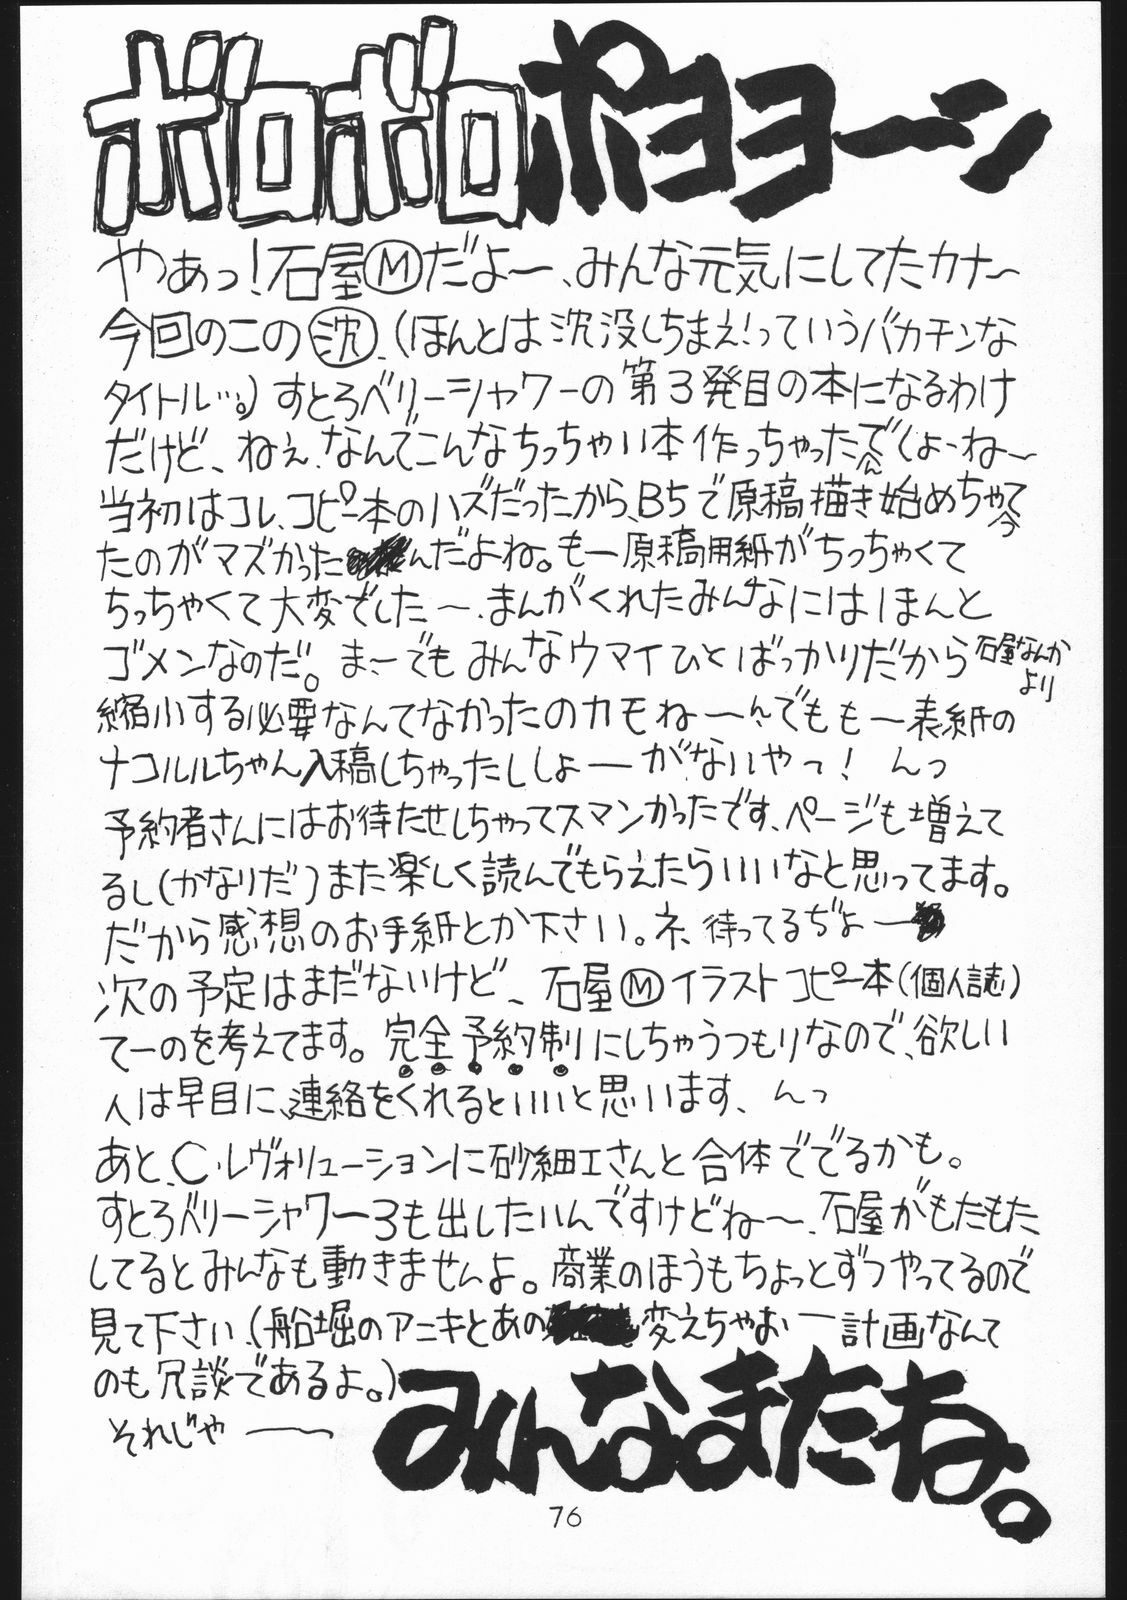 ボロボロポヨヨーン
やぁっ!石屋Ⓜだよ〜、みんな元気にしてたカナ〜
今回のこの沈、(ほんとは沈没しちまえ!っていうバカチンな
タイトル…。)すとろベリーシャワーの第3発目の本になるわけ
だけど、ねぇ、なんでこんなちっちゃい本作っちゃったんでしょーね〜
当初はコレ、コピー本のハズだったから、B5で原稿描き始めちゃって
たのがマズかったんだよね。もー原稿用紙がちっちゃくて
ちっちゃくて大変でした〜、まんがくれたみんなにはほんと
ゴメンなのだ。ま〜でもみんなウマイひとばっかりだから石屋なんかより
縮小する必要なんてなかったのカモね〜んでももー表紙の
ナコルルちゃん入稿しちゃったししょーがないやっ!んっ
予約者さんにはお待たせしちゃってスマンかったです、ページも増えて
るし(かなりだ)また楽しく読んでもらえたらいいなと思ってます。
だから感想のお手紙とか下さい。ネ、待ってるぢょー
次の予定はまだないけど、石屋Ⓜイラストコピー本(個人誌)
てーのを考えてます。完全予約制にしちゃうつもりなので、欲しい
人は早目に、連絡をくれるといいと思います、んっ
あと、C・レヴォリューションに砂細工さんと合体ででるかも。
すとろベリーシャワー3も出したいんですけどね〜、石屋がもたもた
してるとみんなも動きませんよ。商業のほうもちょっとずつやってるので
見て下さい、(船堀のアニキとあの変えちゃおー計画なんて
のも冗談であるよ。)
それじゃ──
みんなまたね。
76